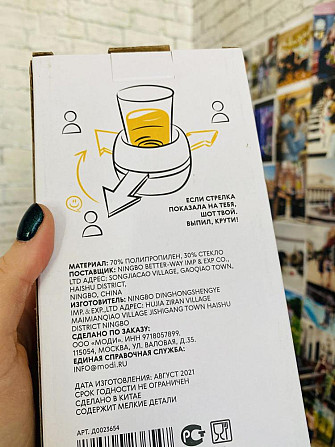 ЕСЛИ СТРЕЛКА
ПОКАЗАЛА НА ТЕБЯ,
ШОТ ТВОЙ.
ВЫПИЛ, КРУТИ!
МАТЕРИАЛ: 70% ПОЛИПРОПИЛЕН, 30% СТЕКЛО
ПОСТАВЩИК: NINGBO BETTER-WAY IMP & EXP CO.,
LTD АДРЕС: SONGJIACAO VILLAGE, GAOQIAO TOWN,
HAISHU DISTRICT,
NINGBO, CHINA
ИЗГОТОВИТЕЛЬ: NINGBO DINGHONGSHENGYE
IMP.& EXP.,LTD АДРЕС: HUJIA ZIRAN VILLAGE
MAIMIANQIAO VILLAGE JISHIGANG TOWN HAISHU
DISTRICT NINGBO
СДЕЛАНО ПО ЗАКАЗУ:
ООО «МОДИ». ИНН 9718057899,
115054, МОСКВА, УЛ. ВАЛОВАЯ, Д.35.
ЕДИНАЯ СПРАВОЧНАЯ СЛУЖБА:
INFO@MODI.RU
ДАТА ИЗГОТОВЛЕНИЯ: АВГУСТ 2021
СРОК ГОДНОСТИ НЕ ОГРАНИЧЕН
СДЕЛАНО В КИТАЕ
СОДЕРЖИТ МЕЛКИЕ ДЕТАЛИ
АРТ.: Д0023654